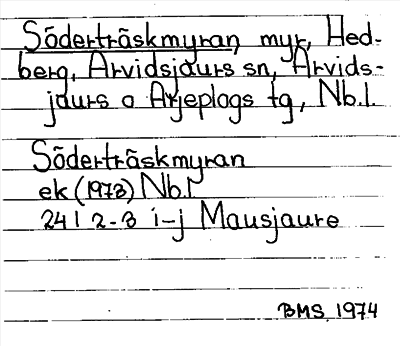 Söderträskmyran, myr, Hed-
berg, Arvidsjaurs sn, Arvids-
jaurs o Arjeplogs tg, Nb.l.
Söderträskmyran
ek (1973) Nb.l
24 I 2-3 i-j Mausjaure
BMS 1974